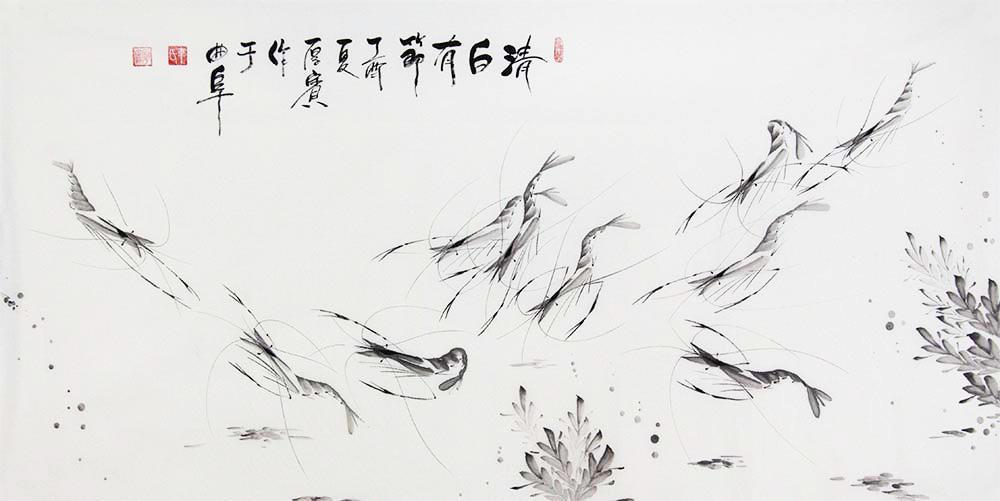 清白有節丁酉夏厚賓作于曲阜